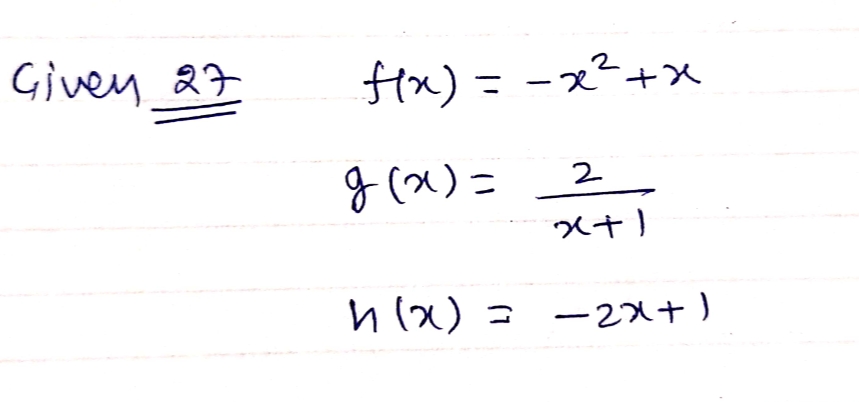 Given 27 f(x) = -x²+x
g(x) = 2/(x+1)
h(x) = -2x+1